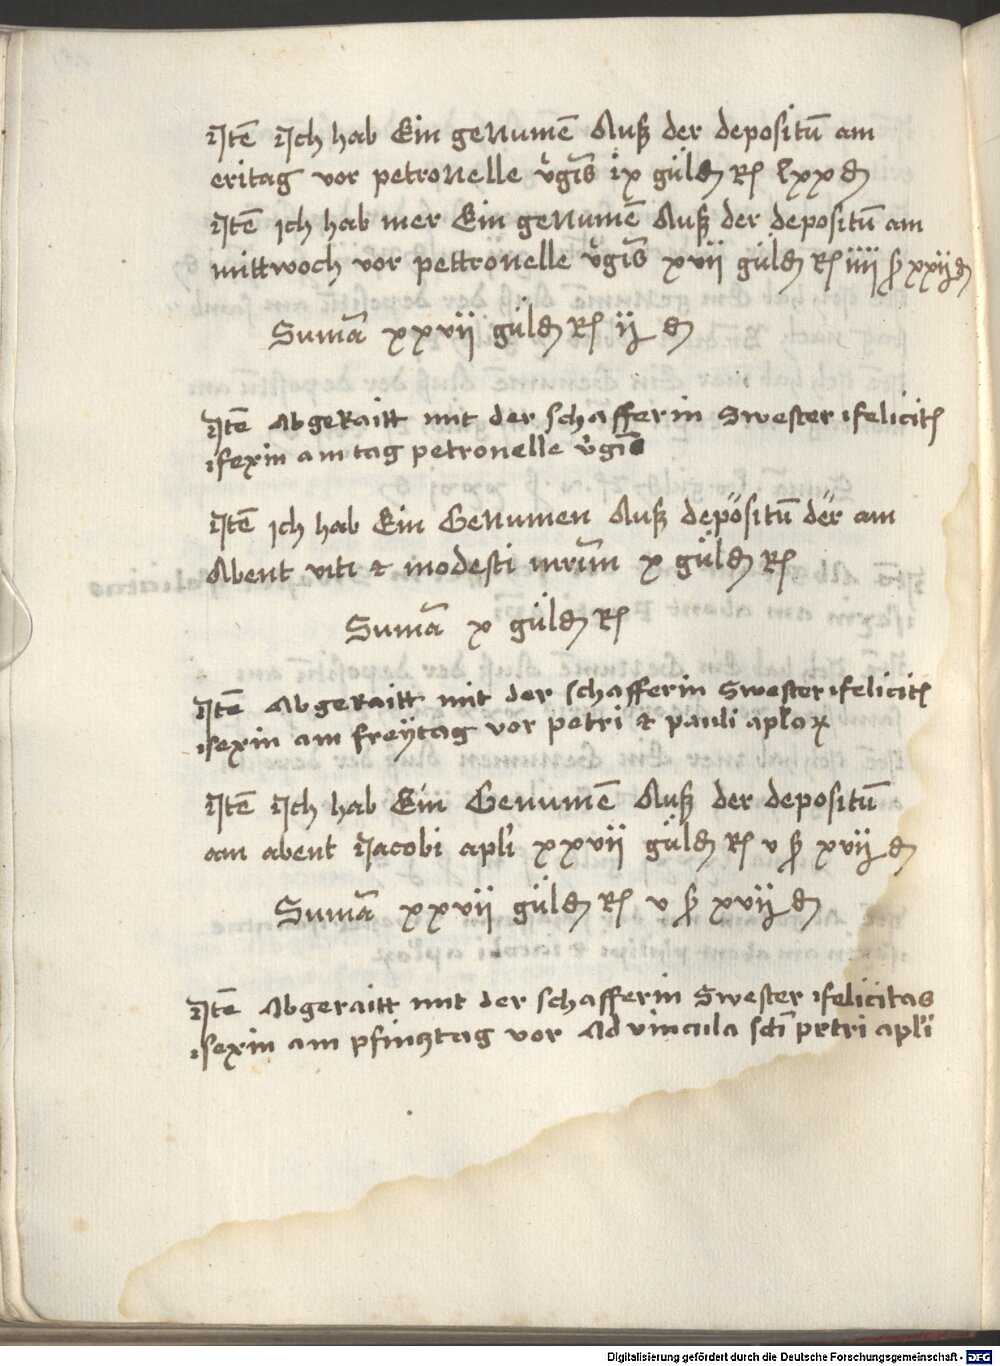 Jtē Jch hab Ein genumē Auß der depositū am
eritag vor petronelle v̄gīs ix güldɳ Rɧ lxx ₰
Jtē ich hab mer Ein genumē Auß der depositū am
mittwoch vor pettronelle v̄gīs xvii güldɳ Rɧ iiii ß xxij ₰
Sumā xxvii güldɳ Rɧ ij ₰
Jtē Abgeraitt mit der schafferin Swester felicitɧ
sexin am tag petronelle v̄gīs
Jtē ich hab Ein Genumen Auß depositū der am
Abent viti & modesti mr̄im x güldɳ Rɧ
Sumā x güldɳ Rɧ
Jtē Abgeraitt mit der schafferin Swester felicitɧ
sexin am freÿtag vor petri & pauli aplōꝝ
Jtē Jch hab Ein Genumē Auß der depositū
am abent Jacobi apl'i xxvii güldɳ Rɧ v ß xvij ₰
Sumā xxvii güldɳ Rɧ v ß xvij ₰
Jtē Abgeraitt mit der schafferin Swester felicitas
sexin am pfincztag vor Ad vincula sc̄ti petri apl'i
Digitalisierung gefördert durch die Deutsche Forschungsgemeinschaft - DFG